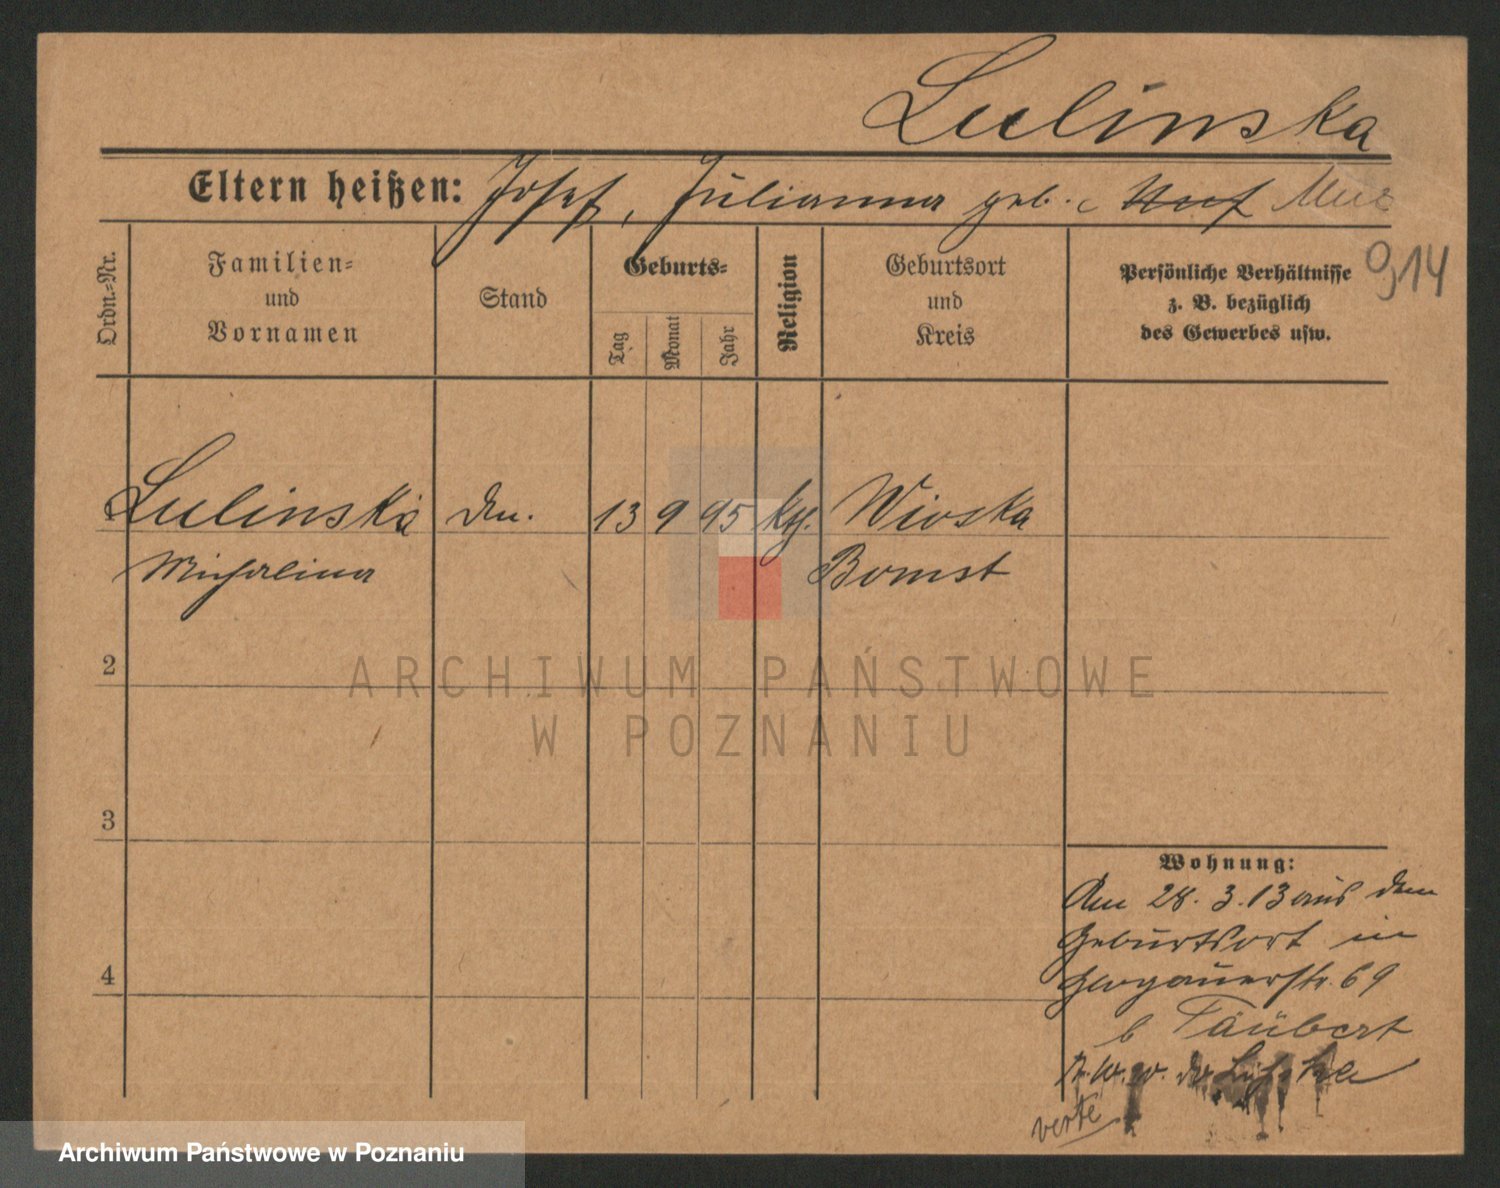 Lulinska
Eltern heißen: Josef, Julianna geb.
914
Ordn.-Nr.
Familien-
und
Vornamen
Stand
Geburts-
Tag
Monat
Jahr
Religion
Geburtsort
und
Kreis
Persönliche Verhältnisse
z. B. bezüglich
des Gewerbes usw.
1 Lulinska 13 9 95 Wioska
Michalina Bomst
2
ARCHIWUM PAŃSTWOWE
W POZNANIU
3
4
Wohnung:
Am 28.3.13 aus dem
Geburtsort in
Glogauerstr. 69
b Täubert
verte
Archiwum Państwowe w Poznaniu